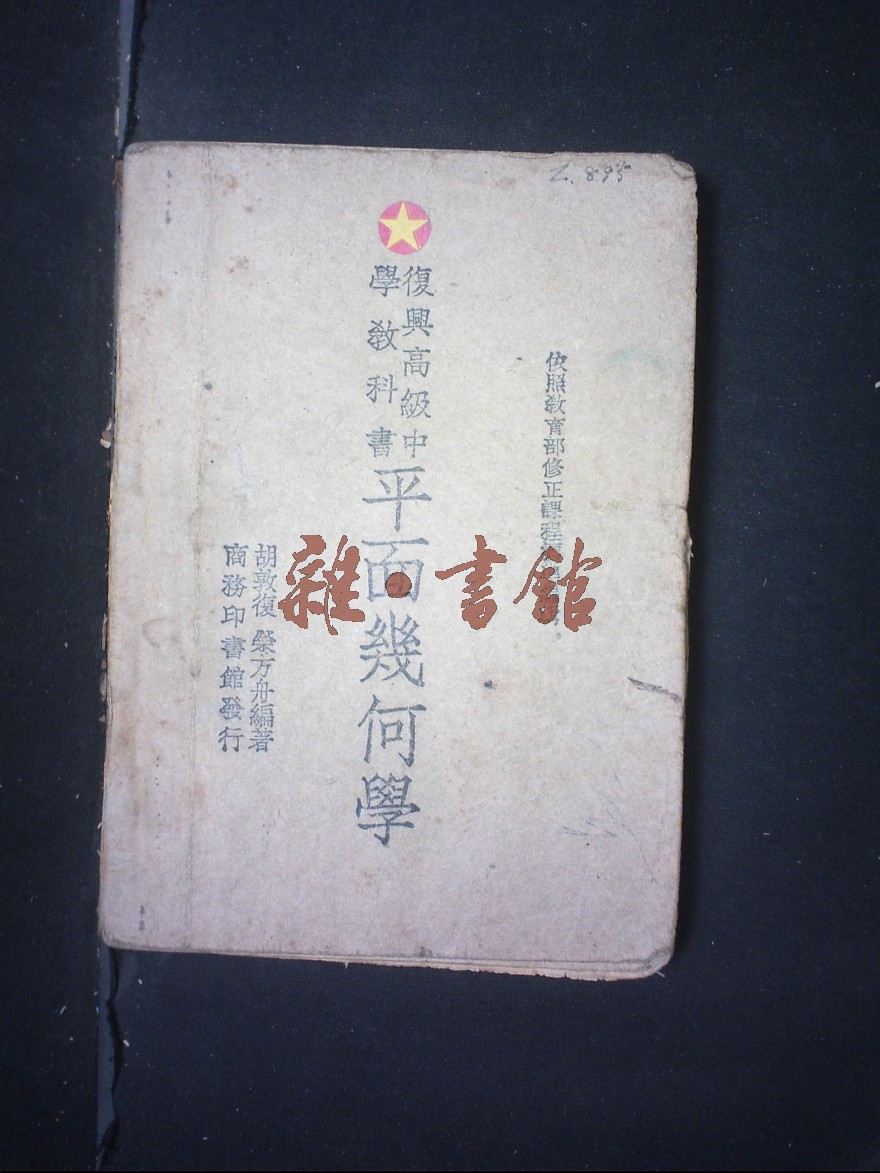 Z. 895
依照教育部修正課程
復興高級中
學教科書
平面幾何學
胡敦復 榮方舟編著
商務印書館發行
雜·書館